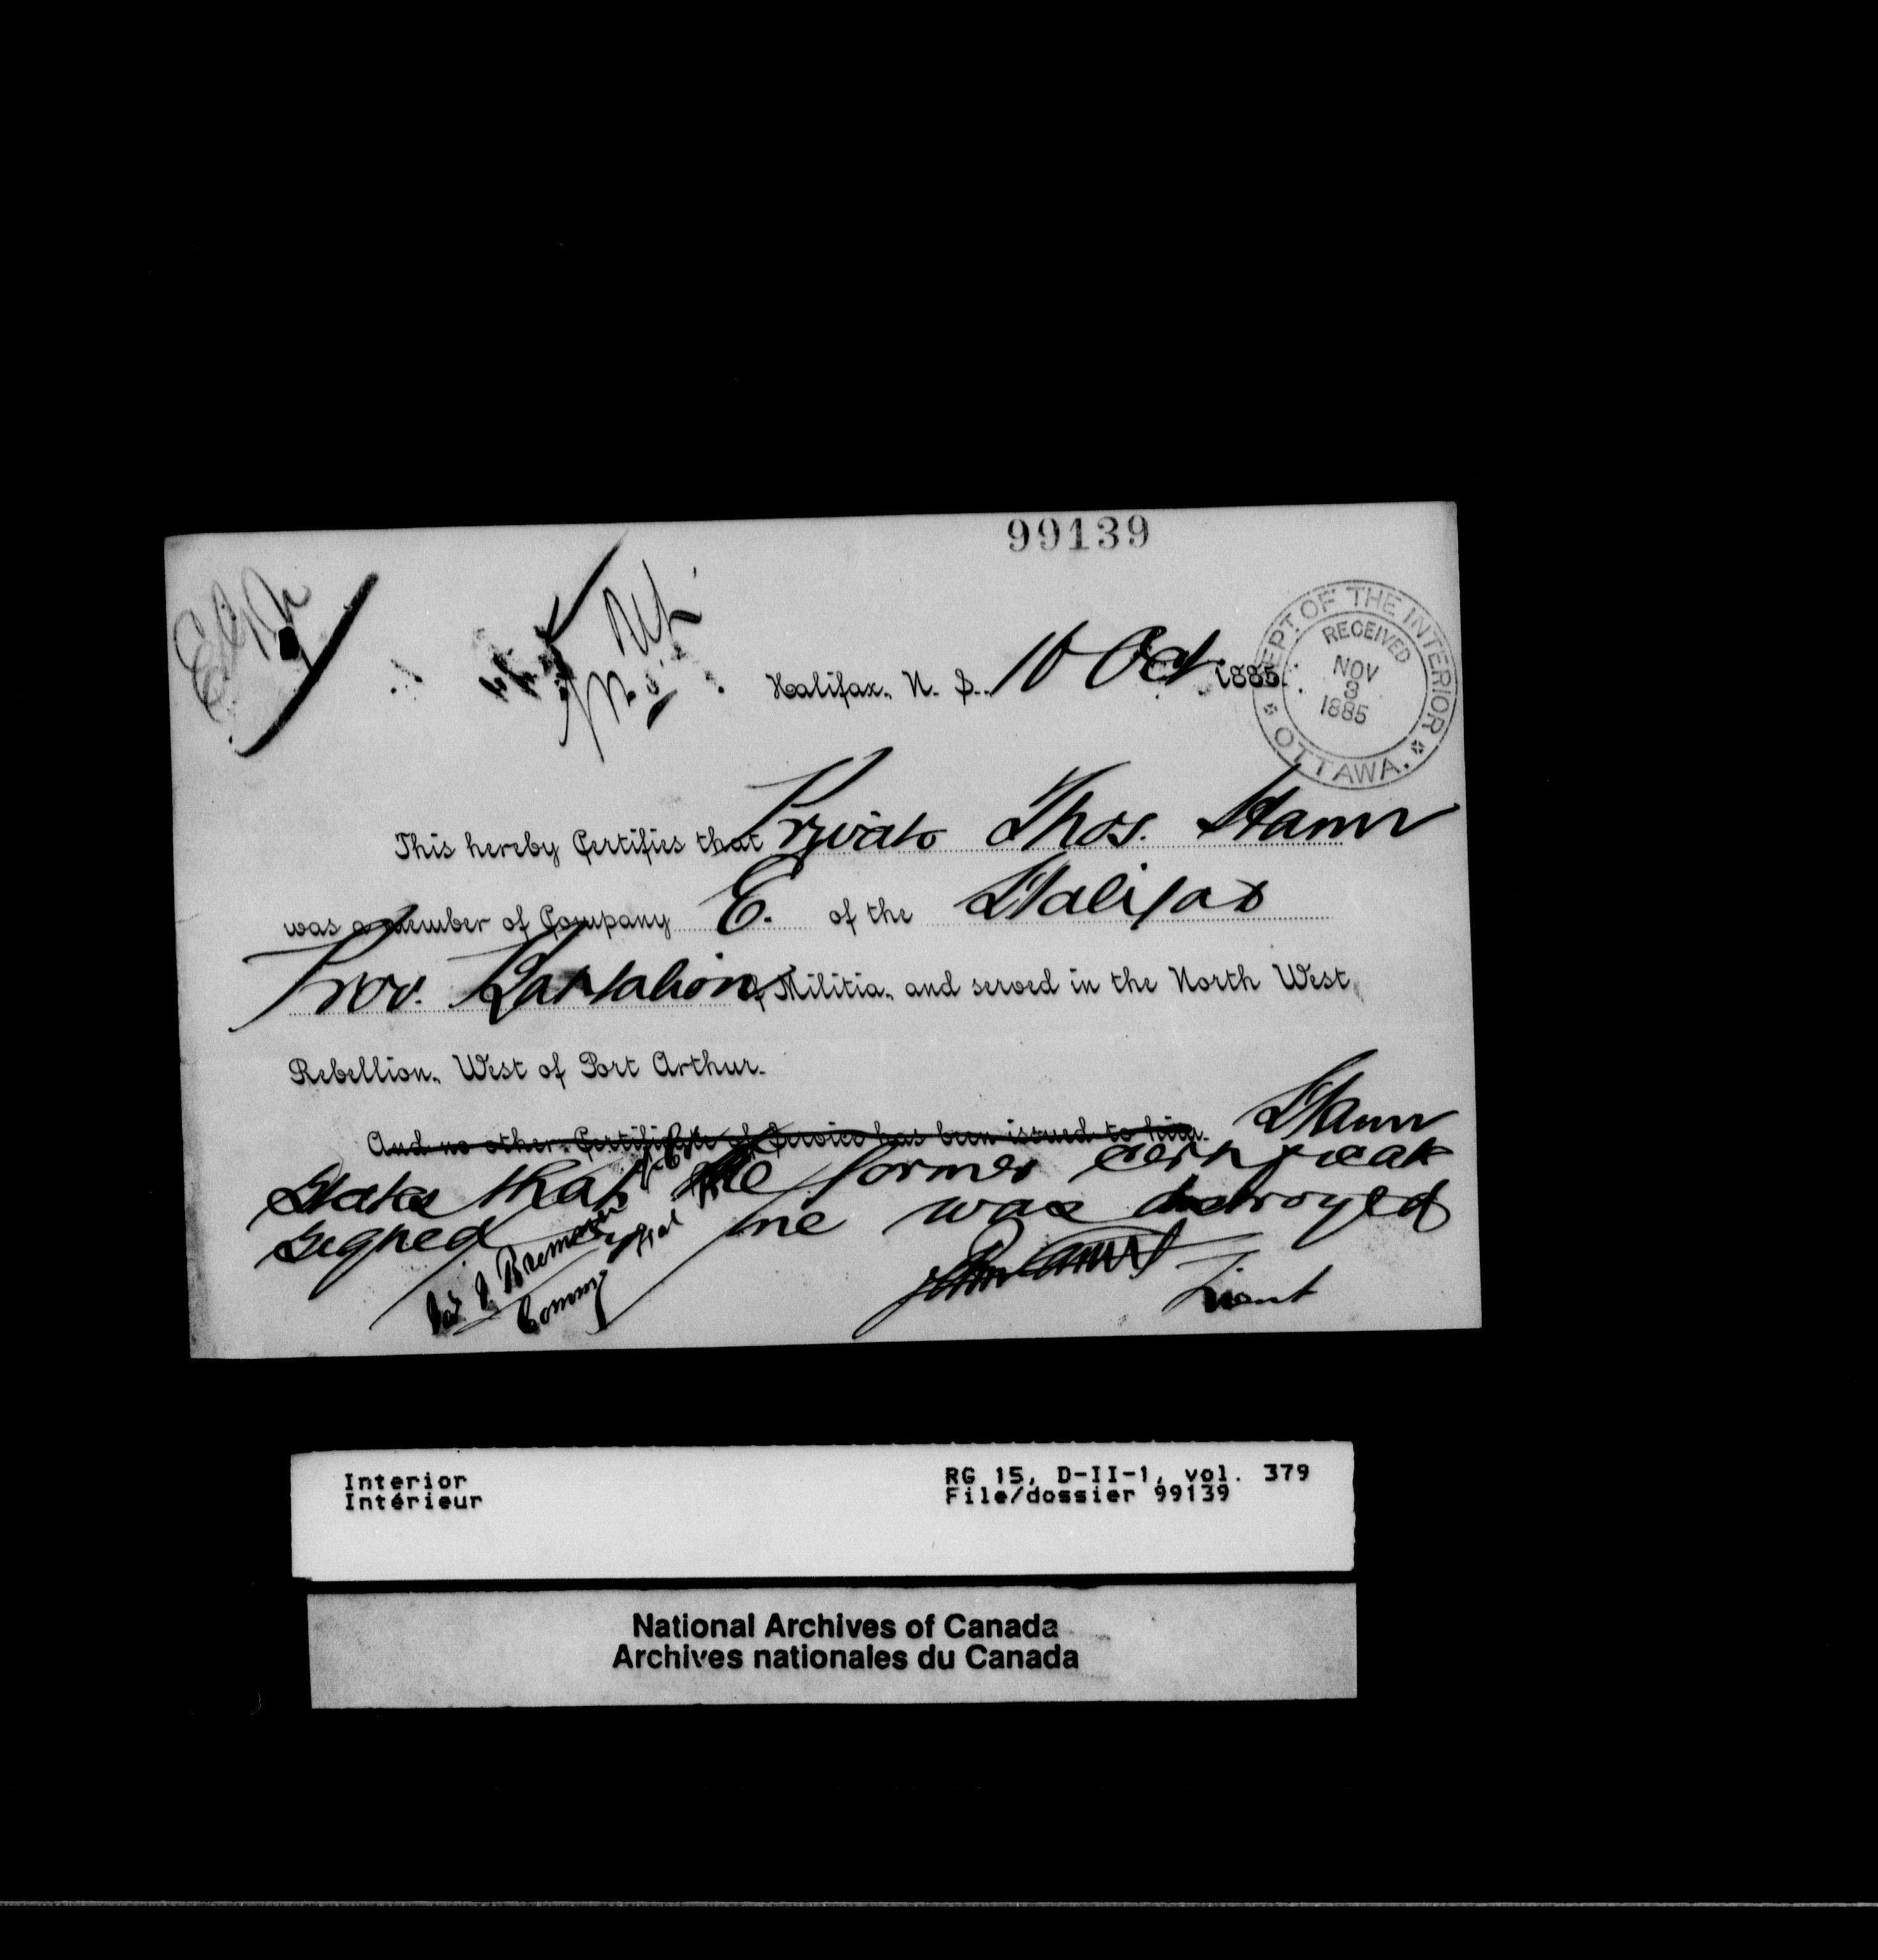 99139
DEPT. OF THE INTERIOR
RECEIVED
NOV
3
1885
OTTAWA.
Halifax, N. S., 16 Oct 1885.
This hereby Certifies that Private Thos. Hann
was a member of Company E. of the Halifax
Prov. Battalion of Militia, and served in the North West
Rebellion, West of Port Arthur.
And no other Certificate of Service has been issued to him. Hann
States that the former certificate
signed me was destroyed
Lieut
Interior
Intérieur
RG 15, D-II-1, vol. 379
File/dossier 99139
National Archives of Canada
Archives nationales du Canada